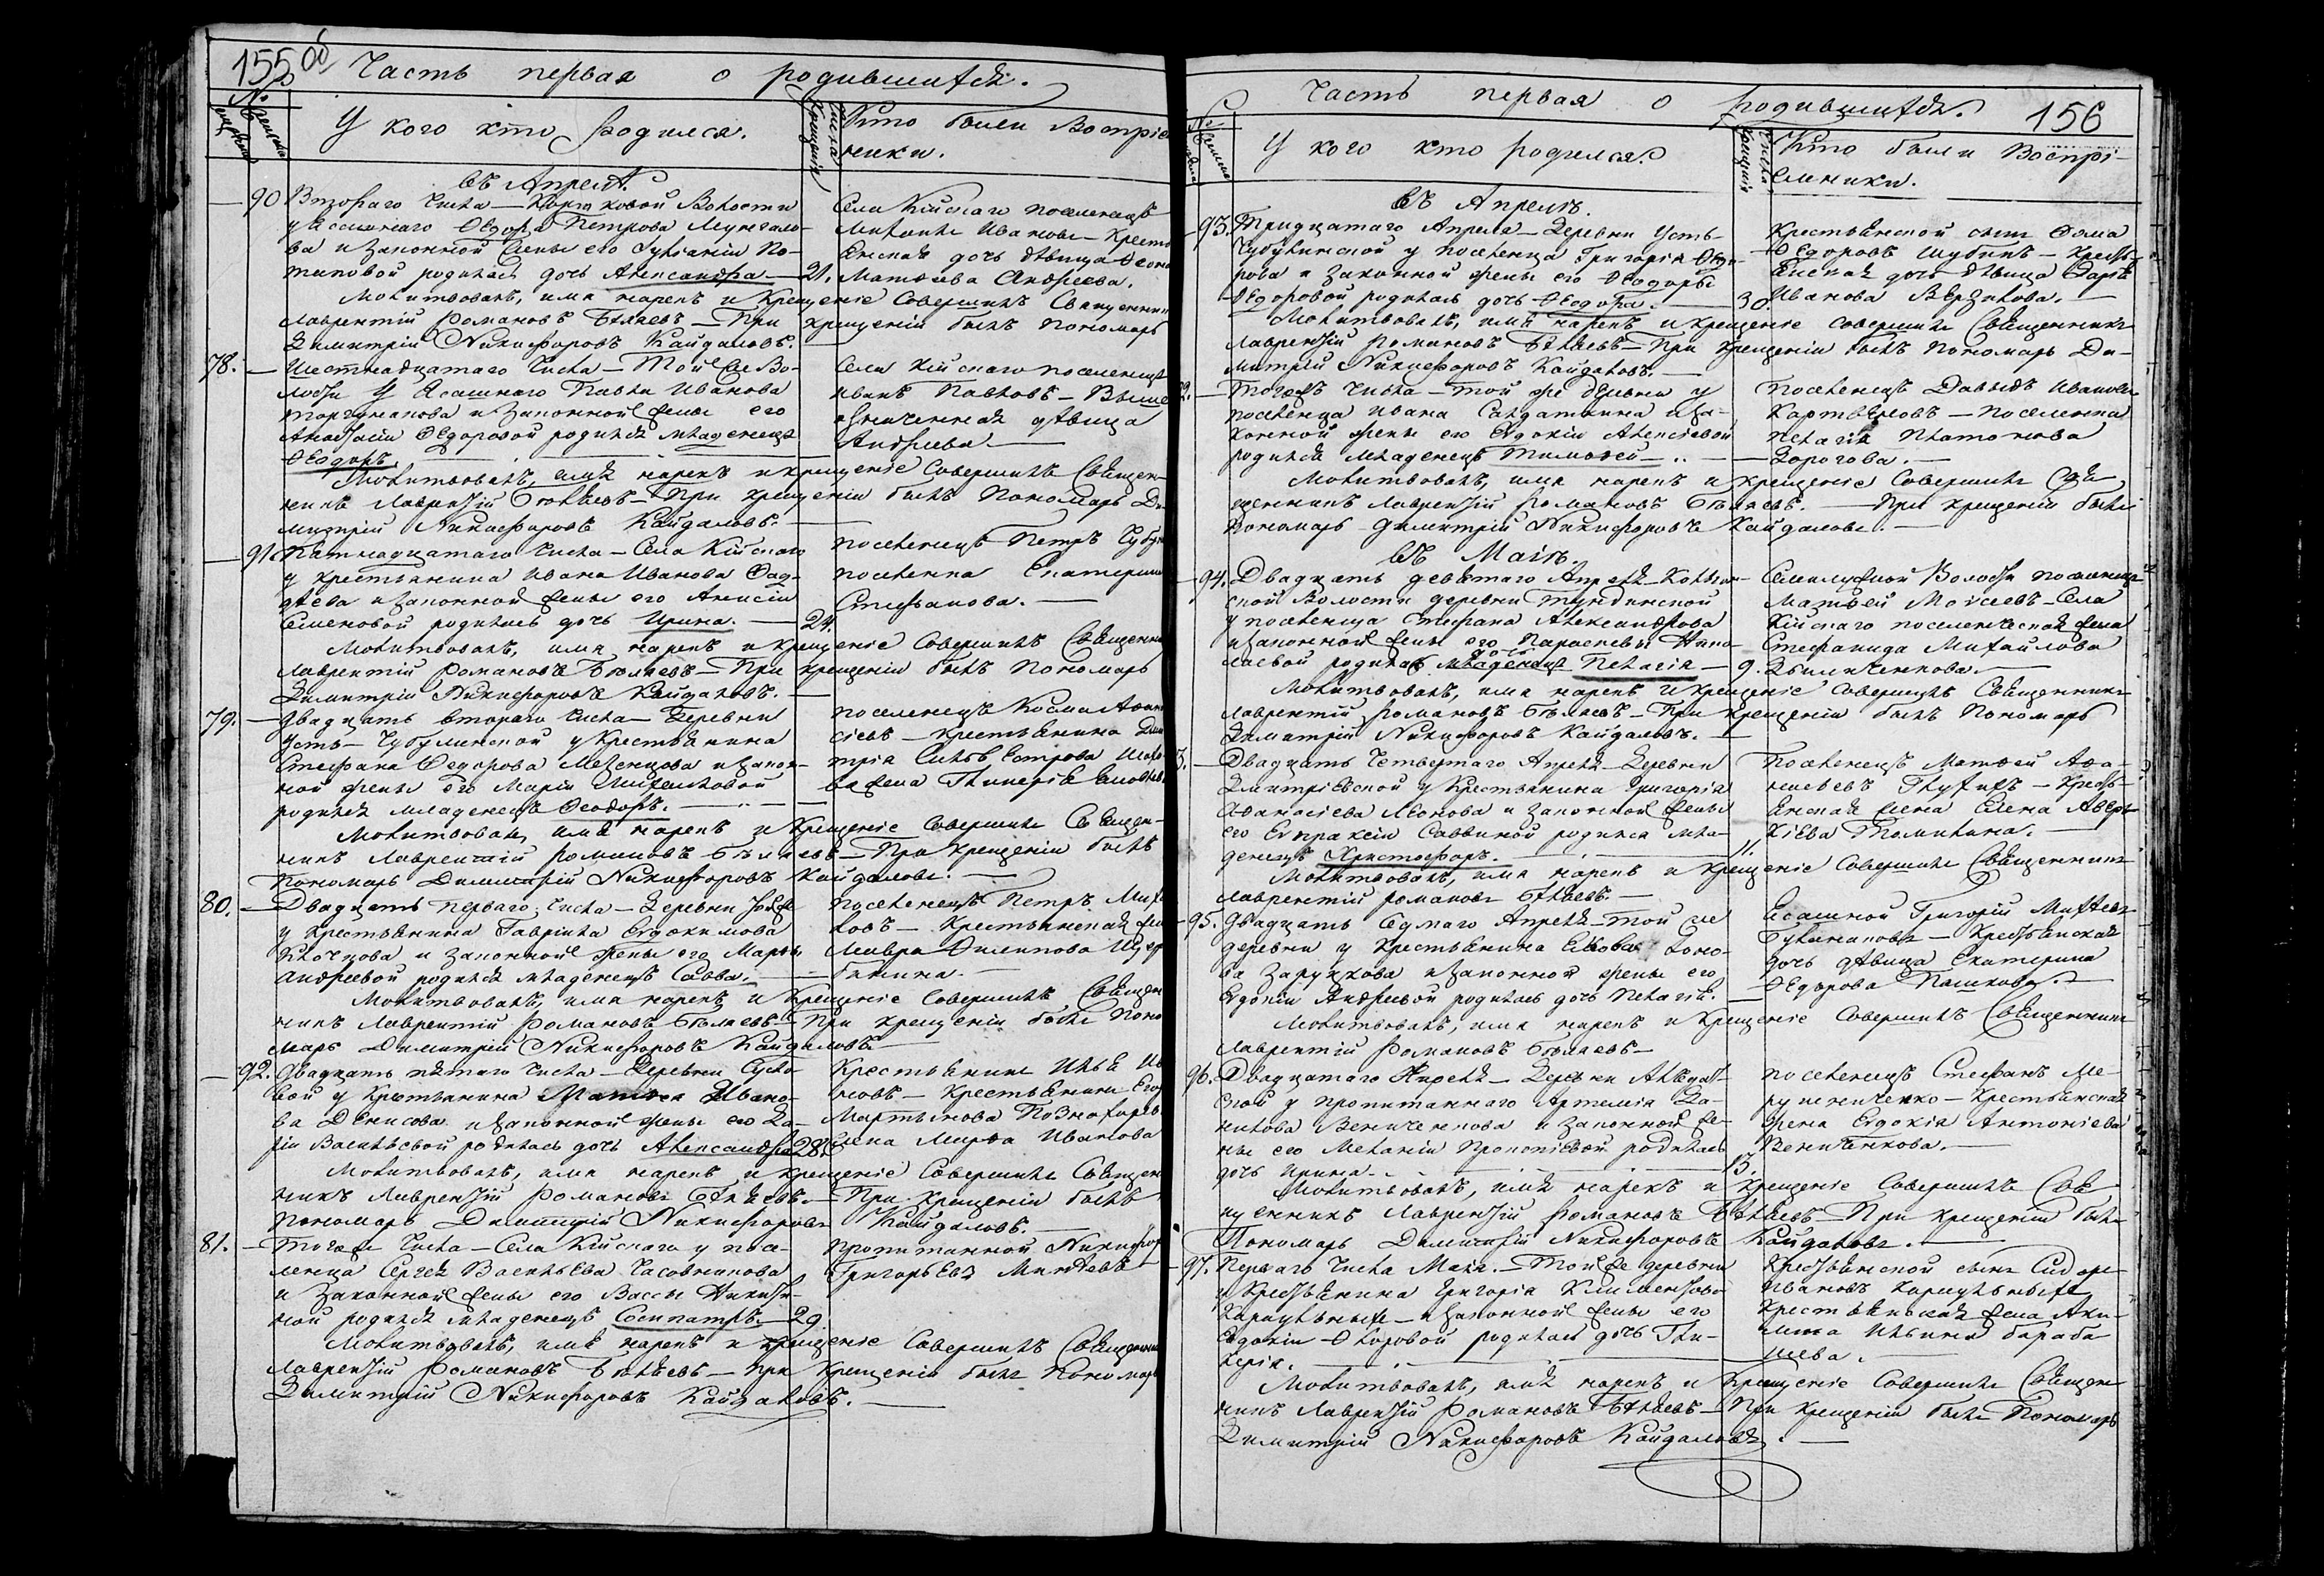 155 об
Часть первая о родившихся.
№
У кого кто родился.
Числа Крещенія
Кто были Воспріе
ники.
въ Апрелѣ.
90 Втораго Числа — Волости
у Ясашнаго Ѳедора Петрова Мунгало-
ва и законной жены его По-
таповой родилась дочь Александра — 21.
Села Кійскаго поселенецъ
Ивановъ — Кресть
янская дочь дѣвица
Матвѣева Андреева.
Молитвовалъ, имя нарекъ и Крещеніе Совершилъ Священник
Лаврентій Романовъ Бѣляевъ — При крещеніи былъ Пономарь
Димитрій Никифоровъ Кайдаловъ.
78. — Шестнадцатаго Числа — Той же Во-
лости У Ясашнаго Павла Иванова
Торгунакова и законной жены его
Анастасіи Ѳедоровой родился младенецъ
Ѳеодоръ.
Села Кійскаго поселенецъ
Иванъ Павловъ — Выше
означенная дѣвица
Андреева —
Молитвовалъ, имя нарекъ и крещеніе Совершилъ Священ-
никъ Лаврентій Бѣляевъ — При крещеніи былъ Пономарь Ди
митрій Никифоровъ Кайдаловъ. —
91. Пятнадцатаго Числа — Села Кійскаго
у крестьянина Ивана Иванова Фад-
дѣева и законной жены его Анисіи
Семеновой родилась дочь Ирина. — 24.
поселенецъ Петръ
поселенка Екатерина
Стефанова. —
Молитвовалъ, имя нарекъ и крещеніе Совершилъ Священни
Лаврентій Романовъ Бѣляевъ — При крещеніи былъ Пономарь
Димитрій Никифоровъ Кайдаловъ. —
79. — Двадцать втораго Числа — Деревни
Усть-Чубулинской у Крестьянина
Стефана Ѳедорова Мезенцова и закон-
ной жены его Маріи Михайловой
родился младенецъ Ѳеодоръ. —
поселенецъ Косма Аѳана
сіевъ — крестьянина Дими
трія
ва жена Гликерія
Молитвовалъ, имя нарекъ и Крещеніе Совершилъ Священ-
никъ Лаврентій Романовъ Бѣляевъ — При крещеніи былъ
Пономарь Димитрій Никифоровъ Кайдаловъ. —
80. — Двадцать перваго Числа — Деревни
у крестьянина Гавріила Евдокимова
Клочкова и законной жены его Марѳы
Андреевой родился младенецъ Савва. —
поселенецъ Петръ
ловъ — Крестьянская жен
Мавра Филипова
бинина.
Молитвовалъ, имя нарекъ и Крещеніе Совершилъ Священ
никъ Лаврентій Романовъ Бѣляевъ — При крещеніи былъ Поно
марь Димитрій Никифоровъ Кайдаловъ. —
92. Двадцать пятаго Числа — Деревни
вой у Крестьянина Ивано-
ва Денисова и законной жены его Да-
ріи Васильевой родилась дочь Александра 28.
Крестьянинъ Илья Ив
новъ — Крестьянина
Мартынова
жена Марѳа Иванова
Молитвовалъ, имя нарекъ и крещеніе Совершилъ Священ
никъ Лаврентій Романовъ Бѣляевъ. — При крещеніи былъ
Пономарь Димитрій Никифоровъ Кайдаловъ.
81. — Тогоже Числа — Села Кійскаго у посе-
ленца Сергея Васильева Часовникова
и законной жены его Вассы Никити-
ной родился младенецъ Сосипатръ. — 29.
Пропитанной Никифор
Григорьевъ
Молитвовалъ, имя нарекъ и крещеніе Совершилъ Священни
Лаврентій Романовъ Бѣляевъ — При Крещеніи былъ Пономарь
Димитрій Никифоровъ Кайдаловъ. —
Часть первая о родившихся. 156
№
У кого кто родился.
Числа Крещенія
Кто были Воспрі-
емники.
въ Апрелѣ.
93. Тридцатаго Апреля — Деревни Усть-
Чубулинской у поселенца Григорія Ѳедо-
рова и законной жены его Ѳеодоры
Ѳедоровой родилась дочь Ѳеодора. — 30.
Крестьянской сынъ Ѳома
Ѳедоровъ Шубинъ — Кресть-
янская дочь дѣвица Дарья
Иванова
Молитвовалъ, имя нарекъ и крещеніе совершилъ Священникъ
Лаврентій Романовъ Бѣляевъ — При Крещеніи былъ Пономарь Ди-
митрій Никифоровъ Кайдаловъ. —
2. — Тогожъ Числа — той же деревни у
поселенца Ивана Салдаткина и за-
конной жены его Евдокіи Алексіевой
родился младенецъ Тимоѳей — .. —
Поселенецъ Давыдъ Ивановъ
— поселенка
Пелагія Платонова
Дорогова. —
Молитвовалъ, имя нарекъ и крещеніе Совершилъ Свя
щенникъ Лаврентій Романовъ Бѣляевъ. — При крещеніи былъ
Пономарь Димитрій Никифоровъ Кайдаловъ. —
въ Маіѣ.
94. Двадцать девятаго Апреля
ской Волости деревни Тундинской
у поселенца Стефана Александрова
и законной жены его Параскевы Нико-
лаевой родилась дочь Пелагія — 9.
Волости поселенецъ
Матѳей Моисеевъ — Села
Кійскаго поселенческая жена
Стефанида Михайлова
Молитвовалъ, имя нарекъ и крещеніе Совершилъ Священникъ
Лаврентій Романовъ Бѣляевъ — При крещеніи былъ Пономарь
Димитрій Никифоровъ Кайдаловъ. —
3. — Двадцать Четвертаго Апреля — Деревни
Дмитріевской у Крестьянина Григорія
Аѳанасіева Леонова и законной жены
его Евпраксіи Саввиной родился мла-
денецъ Христофоръ. — 11.
Поселенецъ Матѳей Аѳа-
насьевъ — Кресть-
янская жена Елена Авер-
кіева Томилина. —
Молитвовалъ, имя нарекъ и Крещеніе Совершилъ Священникъ
Лаврентій Романовъ Бѣляевъ. —
95. Двадцать седмаго Апреля — той же
деревни у Крестьянина Якова
ва и законной жены его
Евдокіи Андреевой родилась дочь Пелагія. —
Ясашной Григорій Михѣевъ
— Крестьянская
дочь дѣвица Екатерина
Ѳедорова Пашкова. —
Молитвовалъ, имя нарекъ и Крещеніе Совершилъ Священникъ
Лаврентій Романовъ Бѣляевъ —
96. Двадцатаго Апреля — Деревни
ской у пропитаннаго Артемія Да-
нилова Вениченкова и законной же-
ны его Меланіи Прокопіевой родилась
дочь Ирина. — 13.
поселенецъ Стефанъ Ме-
— Крестьянская
жена Евдокія Антоніева
Вениченкова. —
Молитвовалъ, имя нарекъ и Крещеніе Совершилъ Свя
щенникъ Лаврентій Романовъ Бѣляевъ — При крещеніи былъ
Пономарь Димитрій Никифоровъ Кайдаловъ. —
97. Перваго Числа Маія. — Той же деревни
у Крестьянина Григорія Климентова
Караульныхъ — и законной жены его
Евдокіи Ѳедоровой родилась дочь Гли-
керія. —
Крестьянской сынъ Сидоръ
Ивановъ Караульныхъ
Крестьянская жена Аку-
лина Ильина Бараба
шева.
Молитвовалъ, имя нарекъ и Крещеніе Совершилъ Священ
никъ Лаврентій Романовъ Бѣляевъ — При крещеніи былъ Пономарь
Димитрій Никифоровъ Кайдаловъ. —